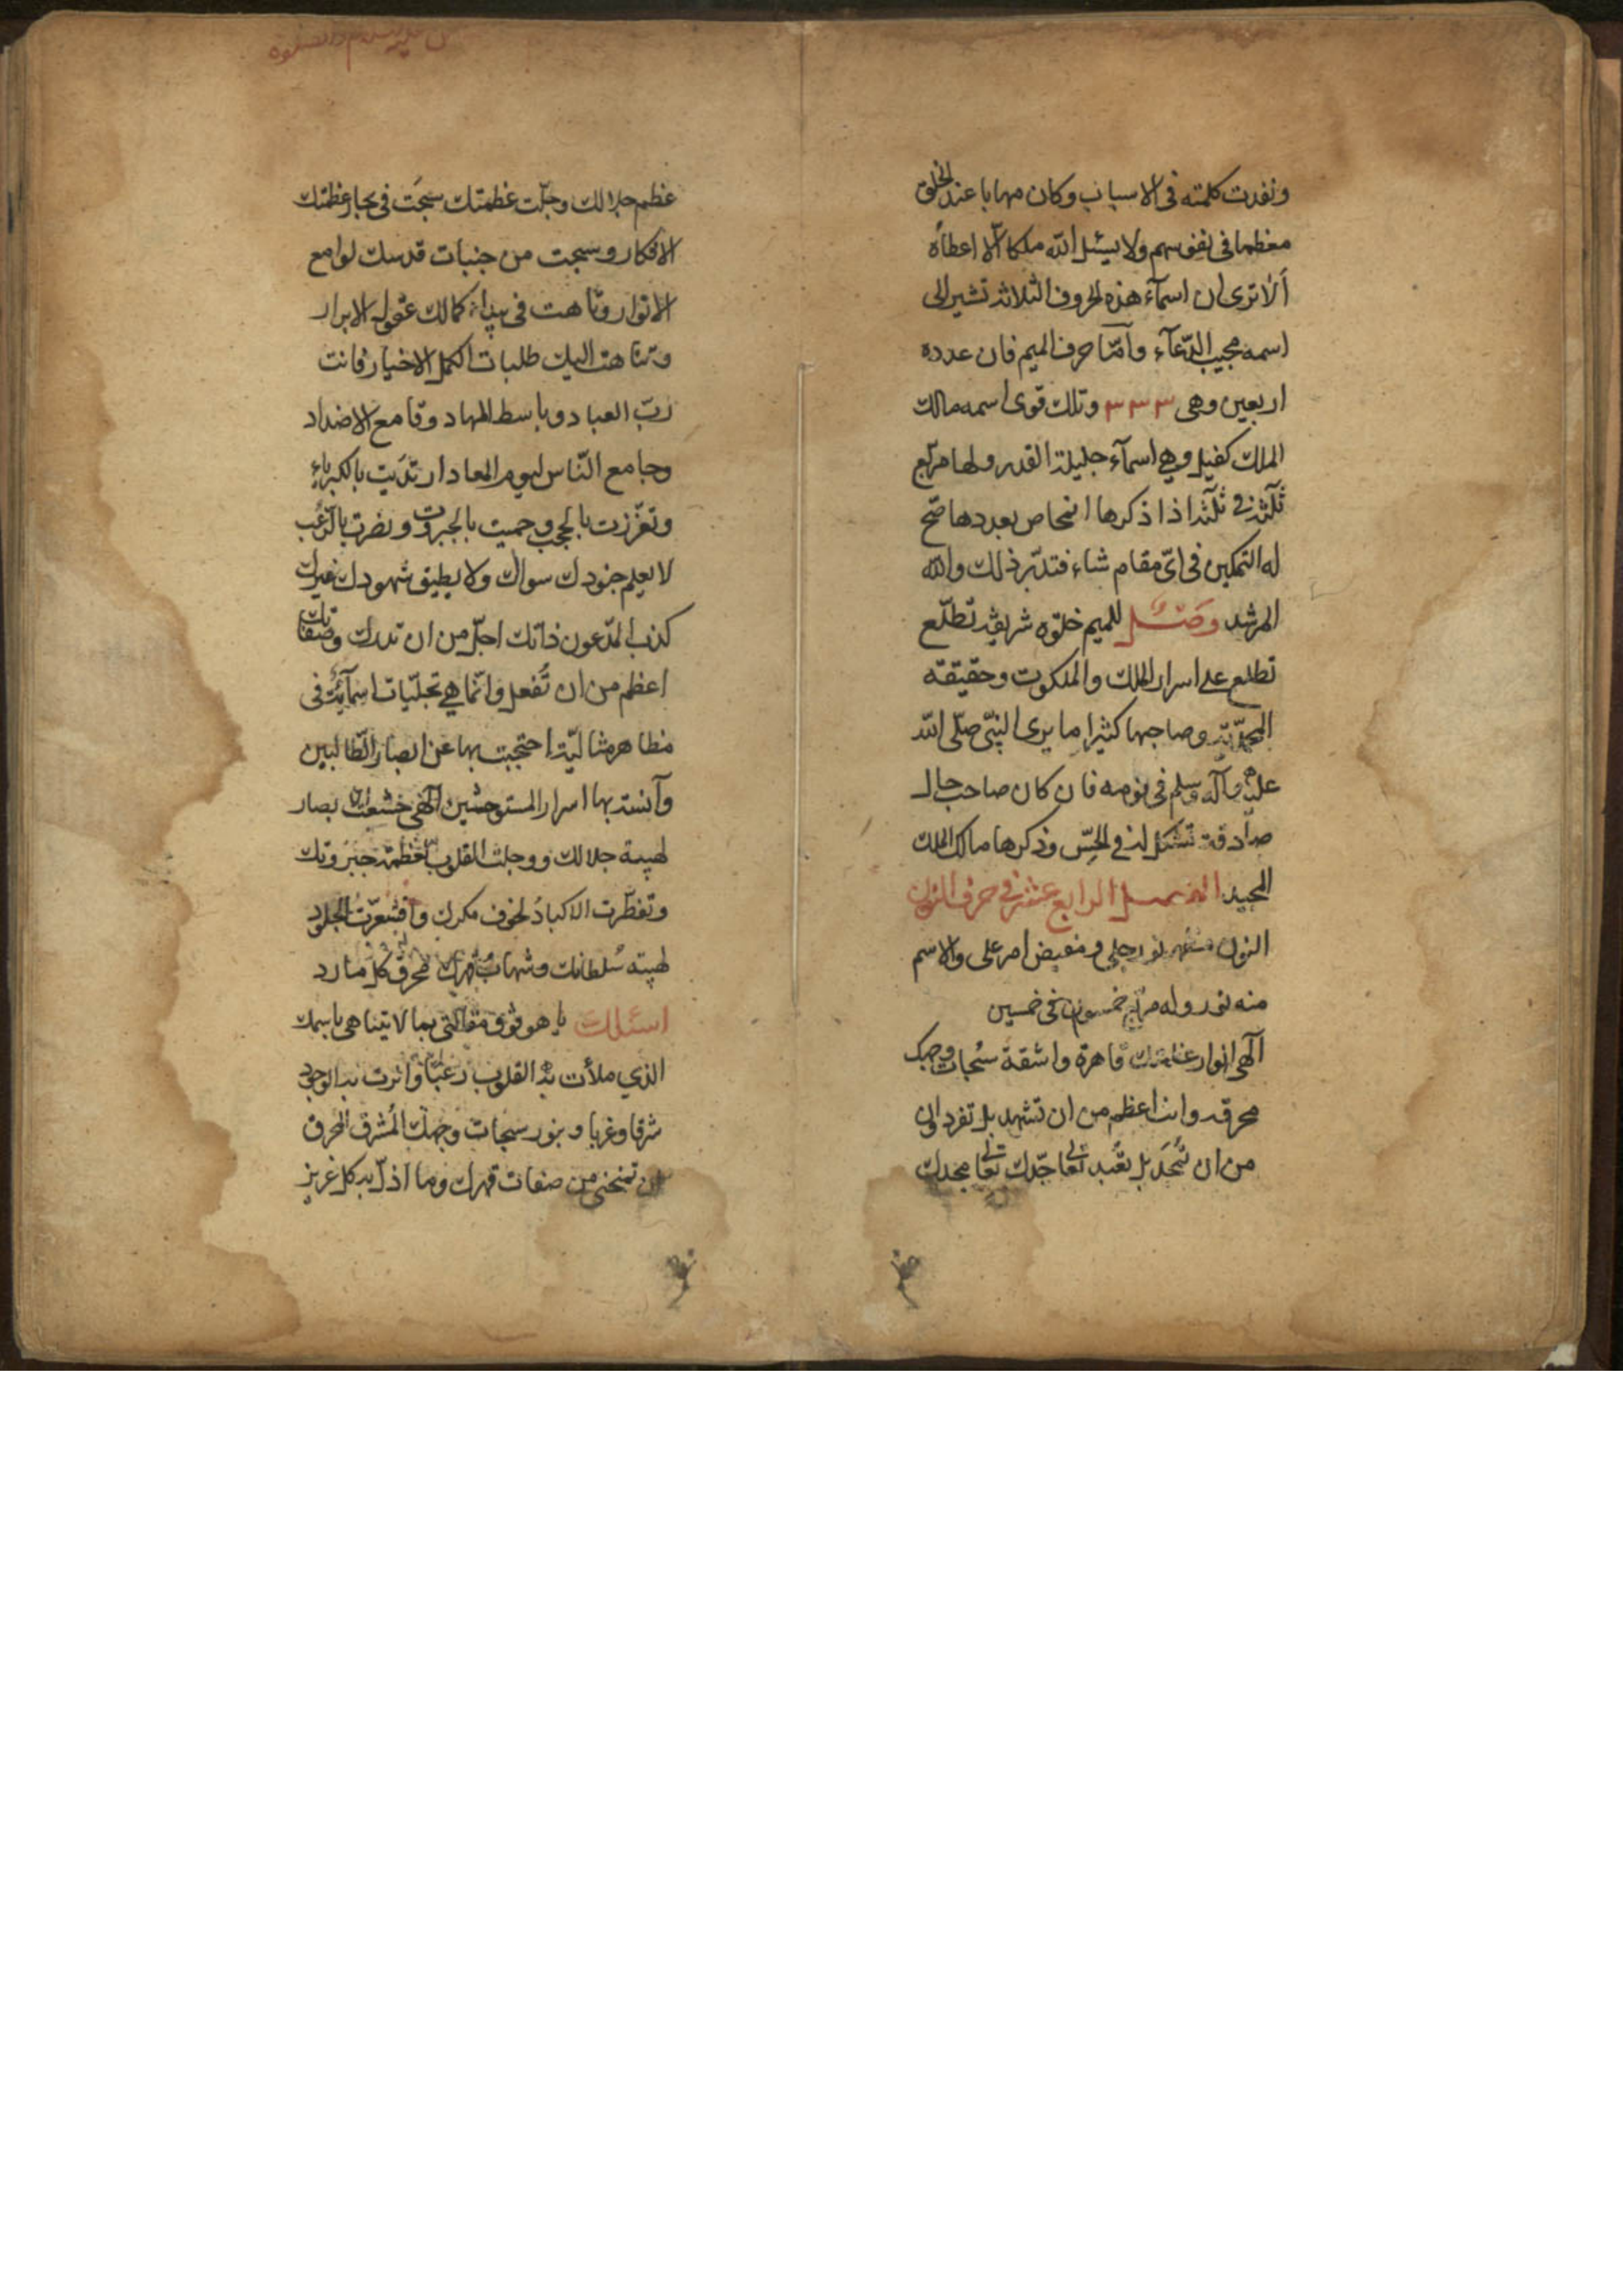 ونفدت كلمته فى الاسباب وكان مهابا عند الخلق
معظما فى نفوسهم ولا يسئل الله ملكا الا اعطاه
ألا ترى ان اسمآء هذه الحروف الثلاثه تشير الى
اسمه مجيب الدّعآء وأمّا حرف الميم فان عدده
اربعين وهى ٣ ٣ ٣ وتلك قوى اسمه مالك
الملك كفيل وهي اسمآء جليلة القدر ولها مربّع
ثلثة في ثلثة اذا ذكرها اشخاص بعددها صّح
له التمكين فى اىّ مقام شاء فتدبّر ذلك والله
المرشد وصـــل للميم خلوه شريفه تطلّع
تطلع على اسرار الملك والملكوت وحقيقته
المحمّديّه وصاحبها كثيرا ما يرى النبّى صلّى الله
عليه وآله وسلم فى نومه فان كان صاحب حال
صادقة تشكل له في الحسّ وذكرها مالك الملك
المجيد الفصــل الرابع عشر في حرف النون
النون نور جلي ومفيض امر على والاسم
منه نور وله مربع خمسون فى خمسين
آلهى انوار عظمتك قاهرة واشقة سُبحات وجهك
محرقه وانت اعظم من ان تشهد بل تفرد
من ان تُحَد بل تعُبد تعالى جدّك تعالى مجدك
عظم جلالك وجلّت عظمتك سبحَت فى بحار عظمتك
الافكار وسبحت من جنبات قدسك لوامع
الانوار وتاهت فى بيداء كمالك عقول الابرار
وتناهت اليك طلبات الكمل الاخيار فانت
ربّ العباد وباسط المهاد وقامع الاضداد
وجامع النّاس ليوم المعاد ارتدَيت بالكبرياء
وتعزّزت بالحجب وحميت بالجبروت ونصرت بالرُعب
لا يعلم جنودك سواك ولا يطيق شهودك غيرك
كذب المدّعون ذاتك اجلّ من ان تدرك وصفاتك
اعظم من ان تُفعل وانّما هي تجلّيات اسمآئية فى
مظاهر مثاليّة احتجبت بها عن ابصار الطّالبين
وآنست بها اسرار المستوحشين آلهى خشعت الابصار
لهيبة جلالك ووجلت القلوب لعظمة جبروتك
وتفطّرت الاكباد لخوف مكرك واقشعرّت الجلود
لهيبة سُلطانك وشهاب قهرك محرق كل مارد
اسئلك يا هو فوق مقالتى بما لا يتناهى باسمك
الذي ملأت به القلوب رعبًا وانرت به الوجود
شرقا وغربا و بنور سبحات وجهك المُشرق المحرق
ان تمنحنى من صفات قهرك وما اذلّ به كل عزيز